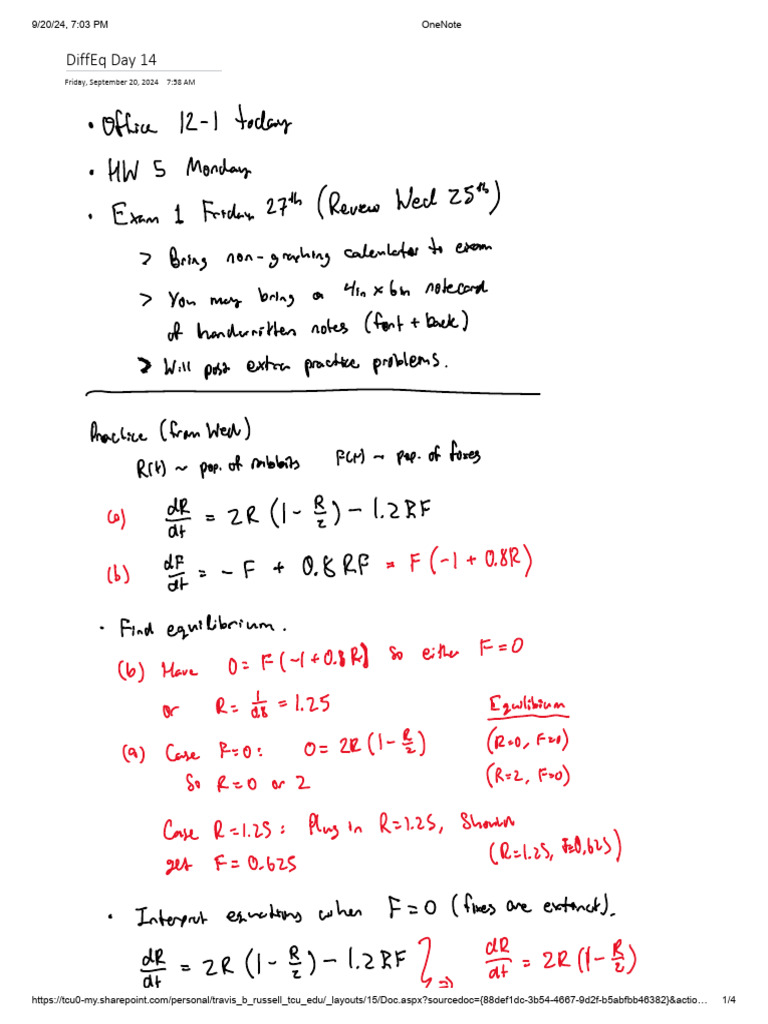 9/20/24, 7:03 PM OneNote
DiffEq Day 14
Friday, September 20, 2024 7:58 AM
• Office 12-1 today
• HW 5 Monday
• Exam 1 Friday 27th (Review Wed 25th)
> Bring non-graphing calculator to exam
> You may bring a 4in x 6in notecard
of handwritten notes (font + back)
> Will post extra practice problems.
Practice (from Wed)
R(t) ~ pop. of rabbits F(t) ~ pop. of foxes
(a) dR/dt = 2R (1 - R/2) - 1.2RF
(b) dF/dt = -F + 0.8RF = F(-1 + 0.8R)
• Find equilibrium.
(b) Have 0 = F(-1+0.8R) so either F=0
or R = 1/0.8 = 1.25
Equilibium
(a) Case F=0: 0 = 2R(1-R/2) (R=0, F=0)
So R=0 or 2 (R=2, F=0)
Case R=1.25: Plug in R=1.25, Should
get F = 0.625 (R=1.25, F=0.625)
• Interpret equations when F=0 (foxes are extinct).
dR/dt = 2R (1 - R/2) - 1.2RF } => dR/dt = 2R(1-R/2)
https://tcu0-my.sharepoint.com/personal/travis_b_russell_tcu_edu/_layouts/15/Doc.aspx?sourcedoc={88def1dc-3b54-4667-9d2f-b5abfbb46382}&actio… 1/4